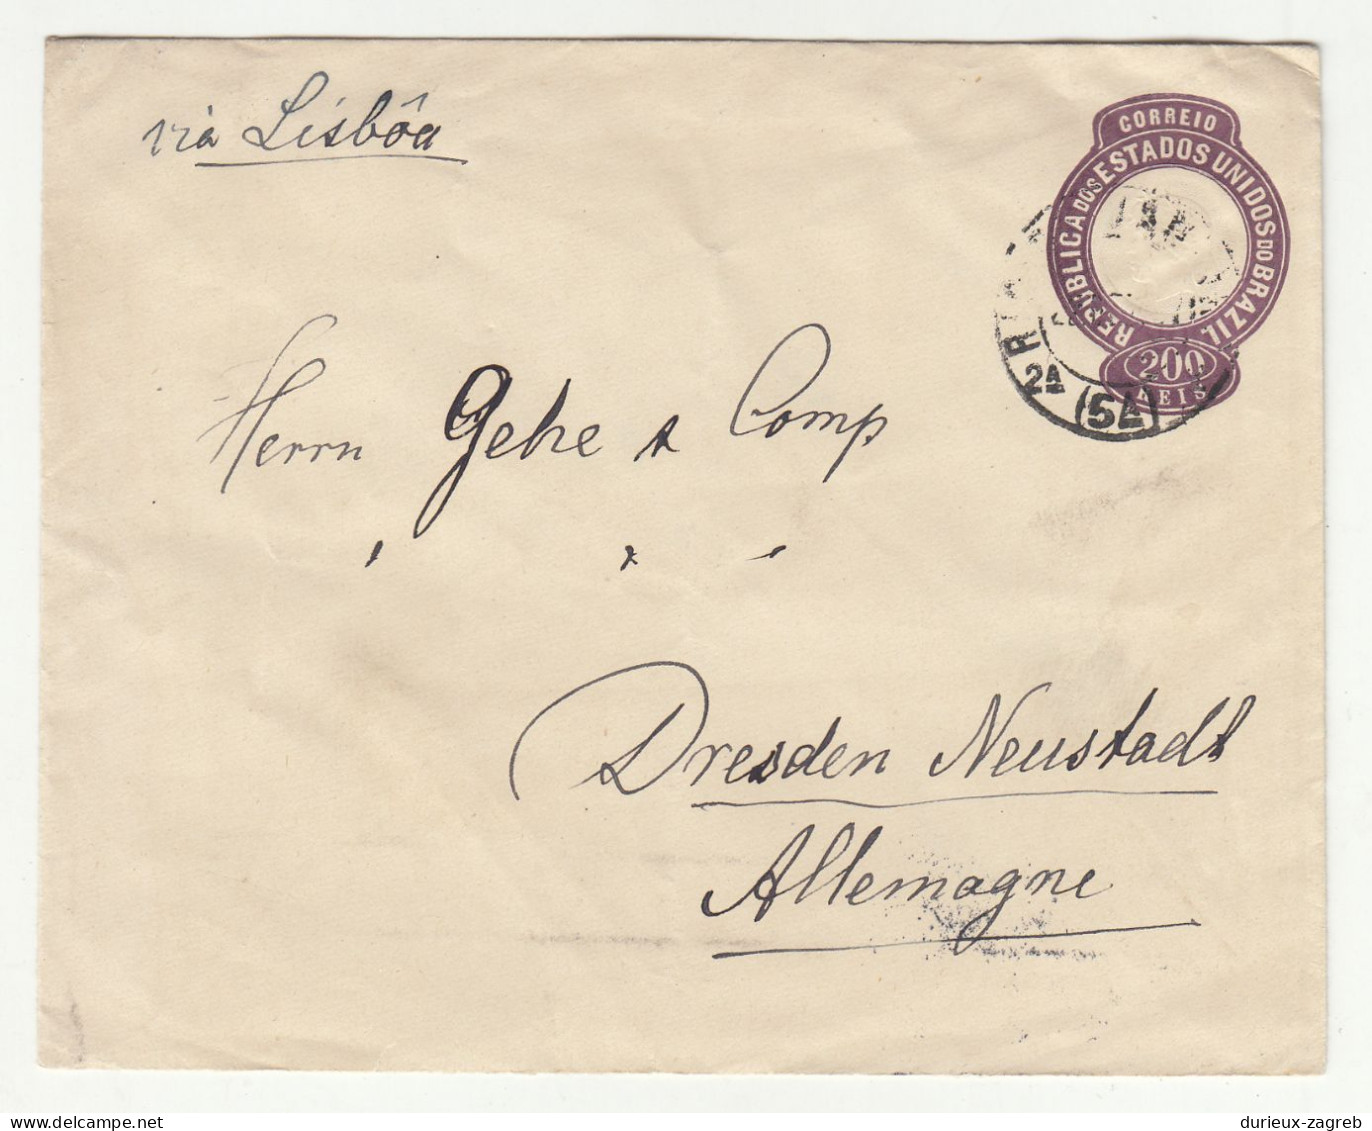 via Lisbôa
CORREIO
REPUBLICA DOS ESTADOS UNIDOS DO BRAZIL
200
REIS
2A (5A)
Herrn Gehe & Comp
Dresden Neustadt
Allemagne
durieux-zagreb